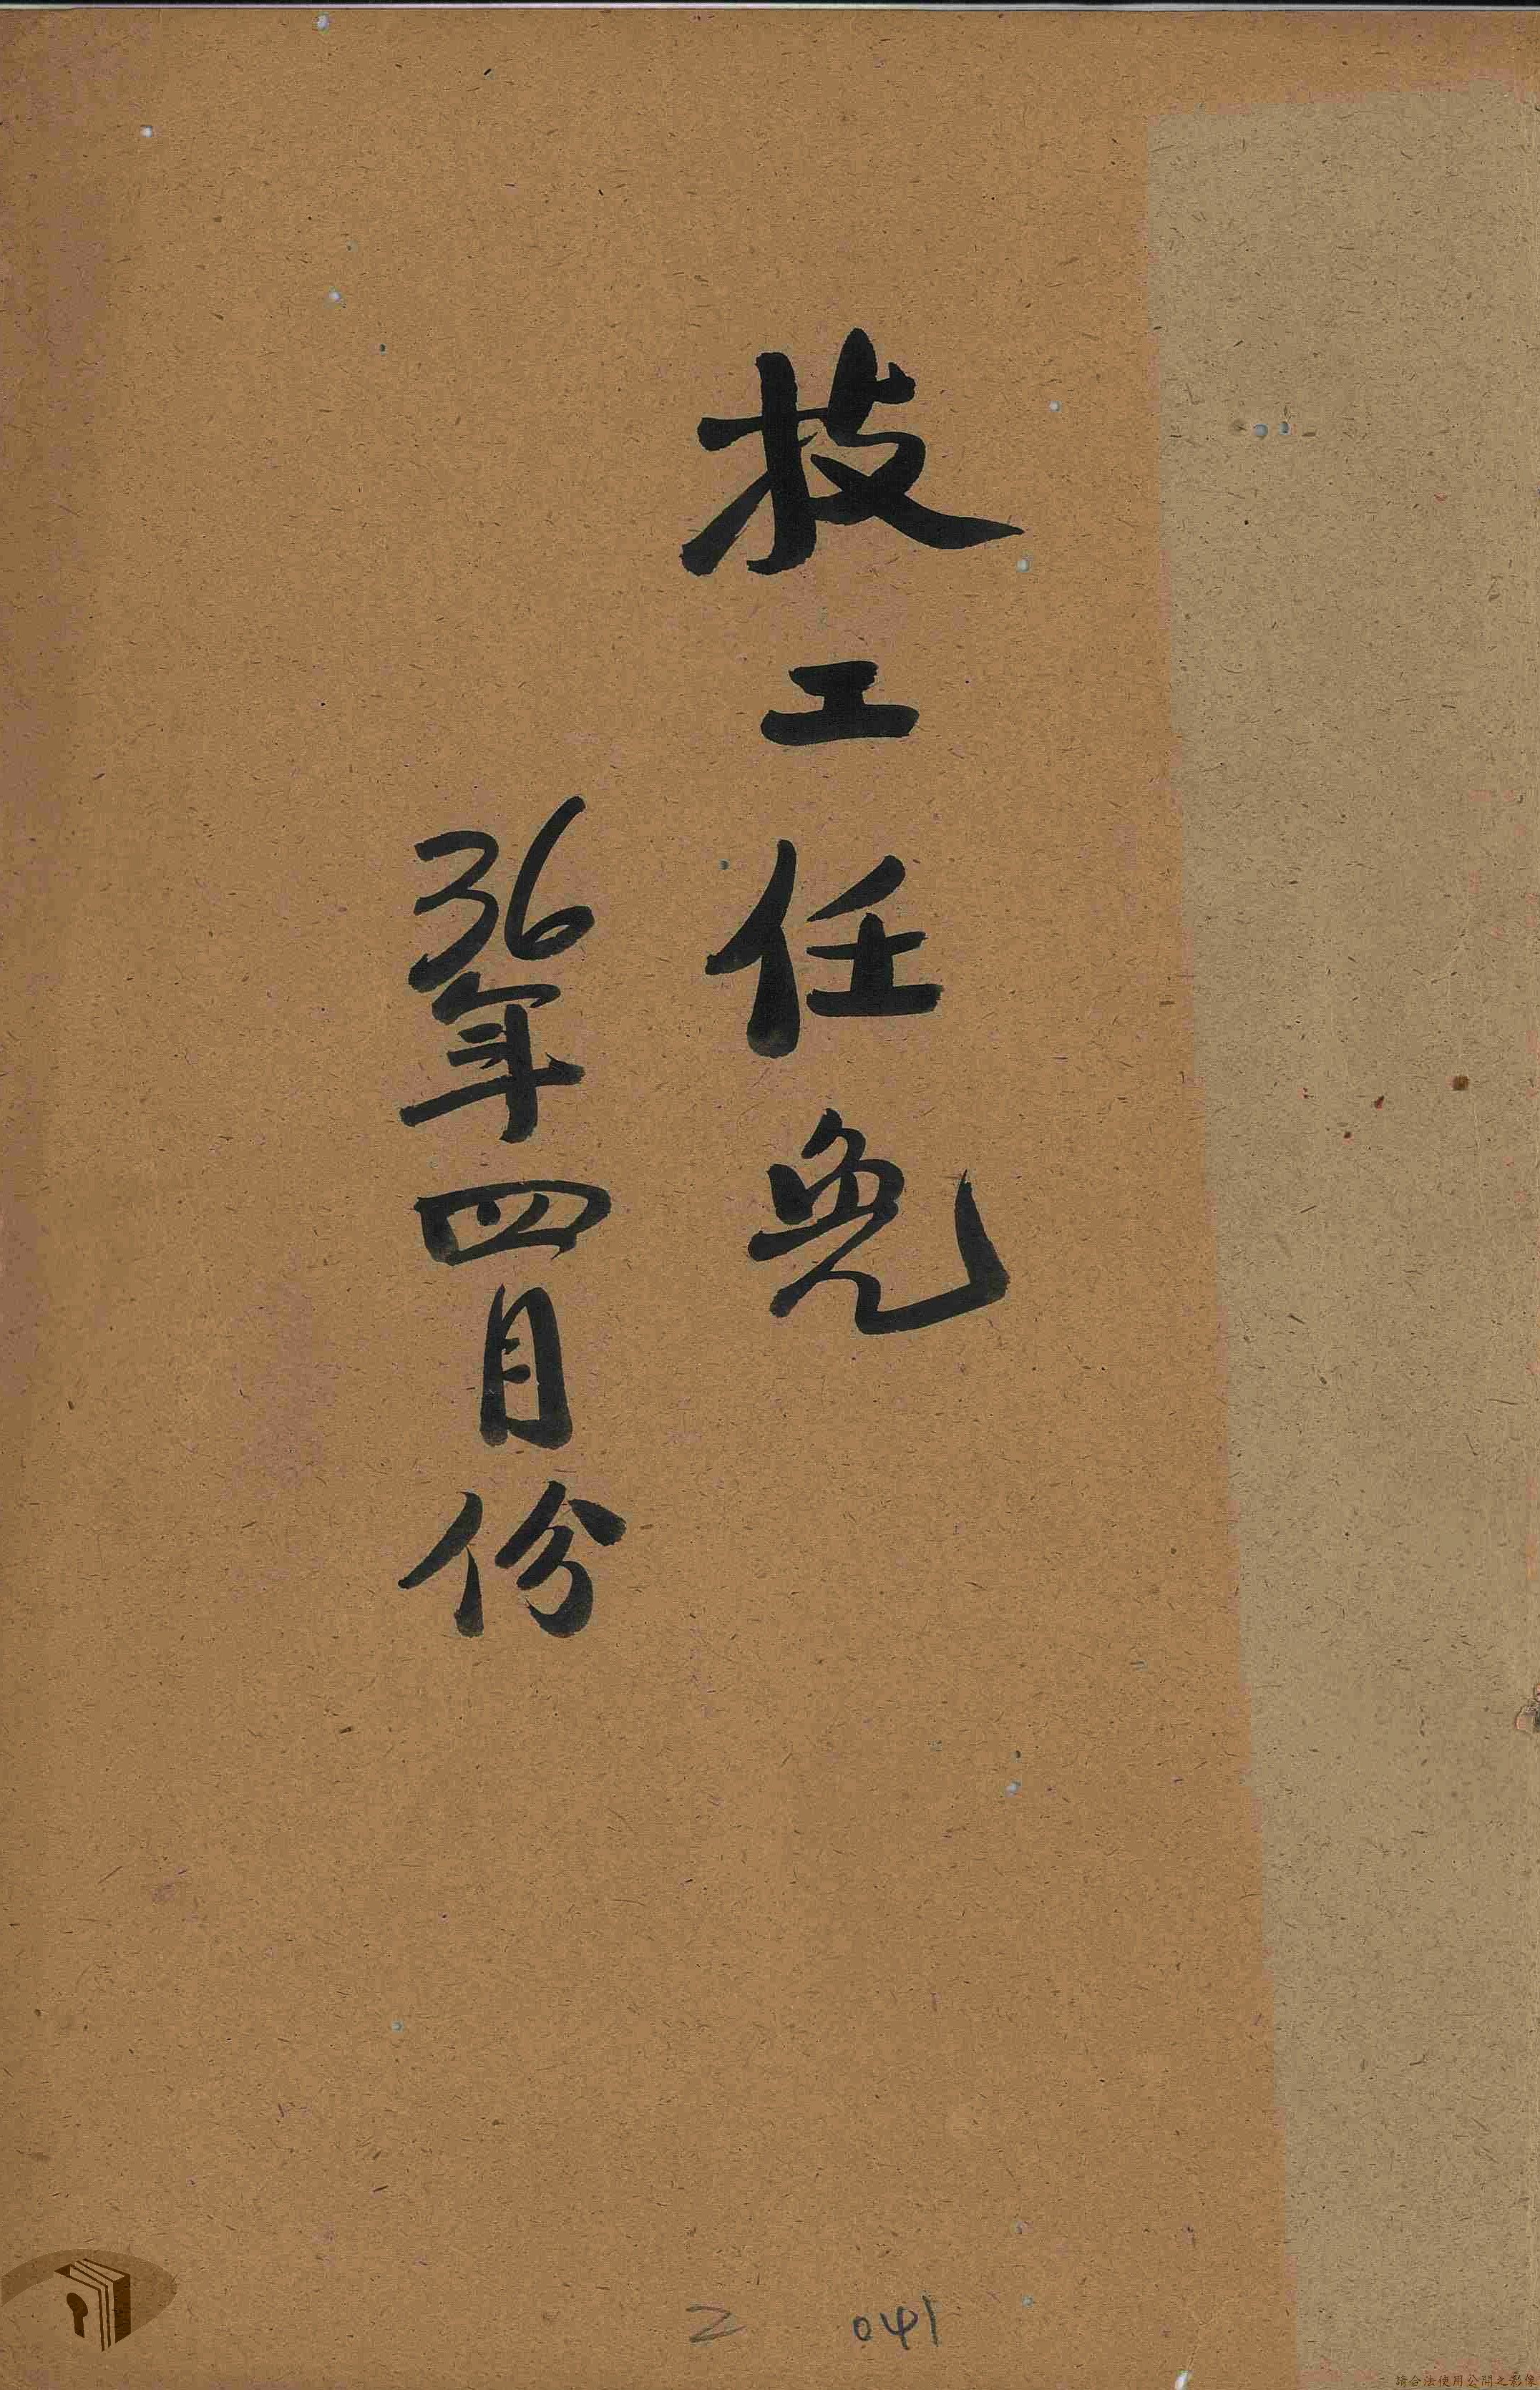 技工任免
36年四月份
2 041
請合法使用公開之影像